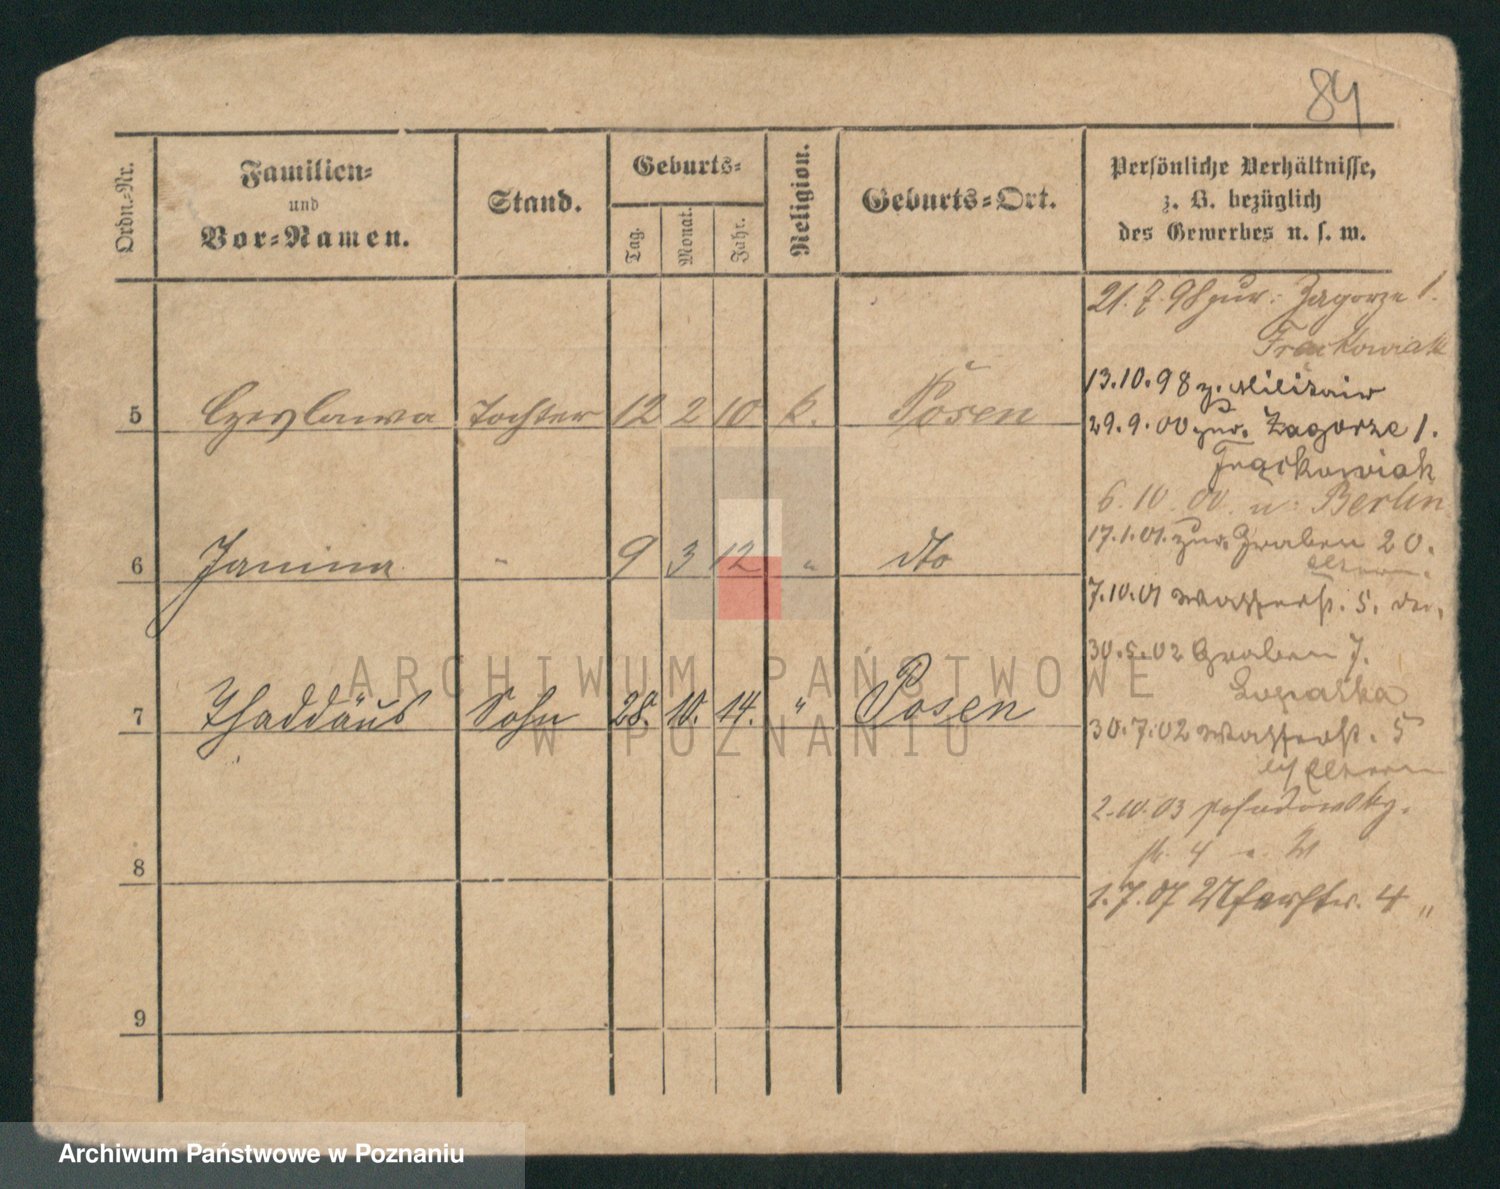 84
Ordn.-Nr.
Familien-
und
Vor-Namen.
Stand.
Geburts-
Tag.
Monat.
Jahr.
Religion.
Geburts-Ort.
Persönliche Verhältnisse,
z. B. bezüglich
des Gewerbes u. s. w.
21.7.98 zur. Zagorze 1.
Frąckowiak
13.10.98 z. Militair
29.9.00 zur. Zagorze 1.
Frąckowiak
6.10.00. n. Berlin
17.1.01. zur. Graben 20.
Eltern.
7.10.01 Wasserst. 5. do.
30.5.02 Graben 7.
Lopatka
30.7.02 Wasserst. 5
b/ Eltern
2.10.03 Posadowsky.
st. 4
1.7.07 4 "
5 Czeslawa Tochter 12 2 10 k. Posen
6 Janina " 9 3 12 " dto
7 Thaddäus Sohn 28. 10. 14. " Posen
8
9
ARCHIWUM PAŃSTWOWE
W POZNANIU
Archiwum Państwowe w Poznaniu